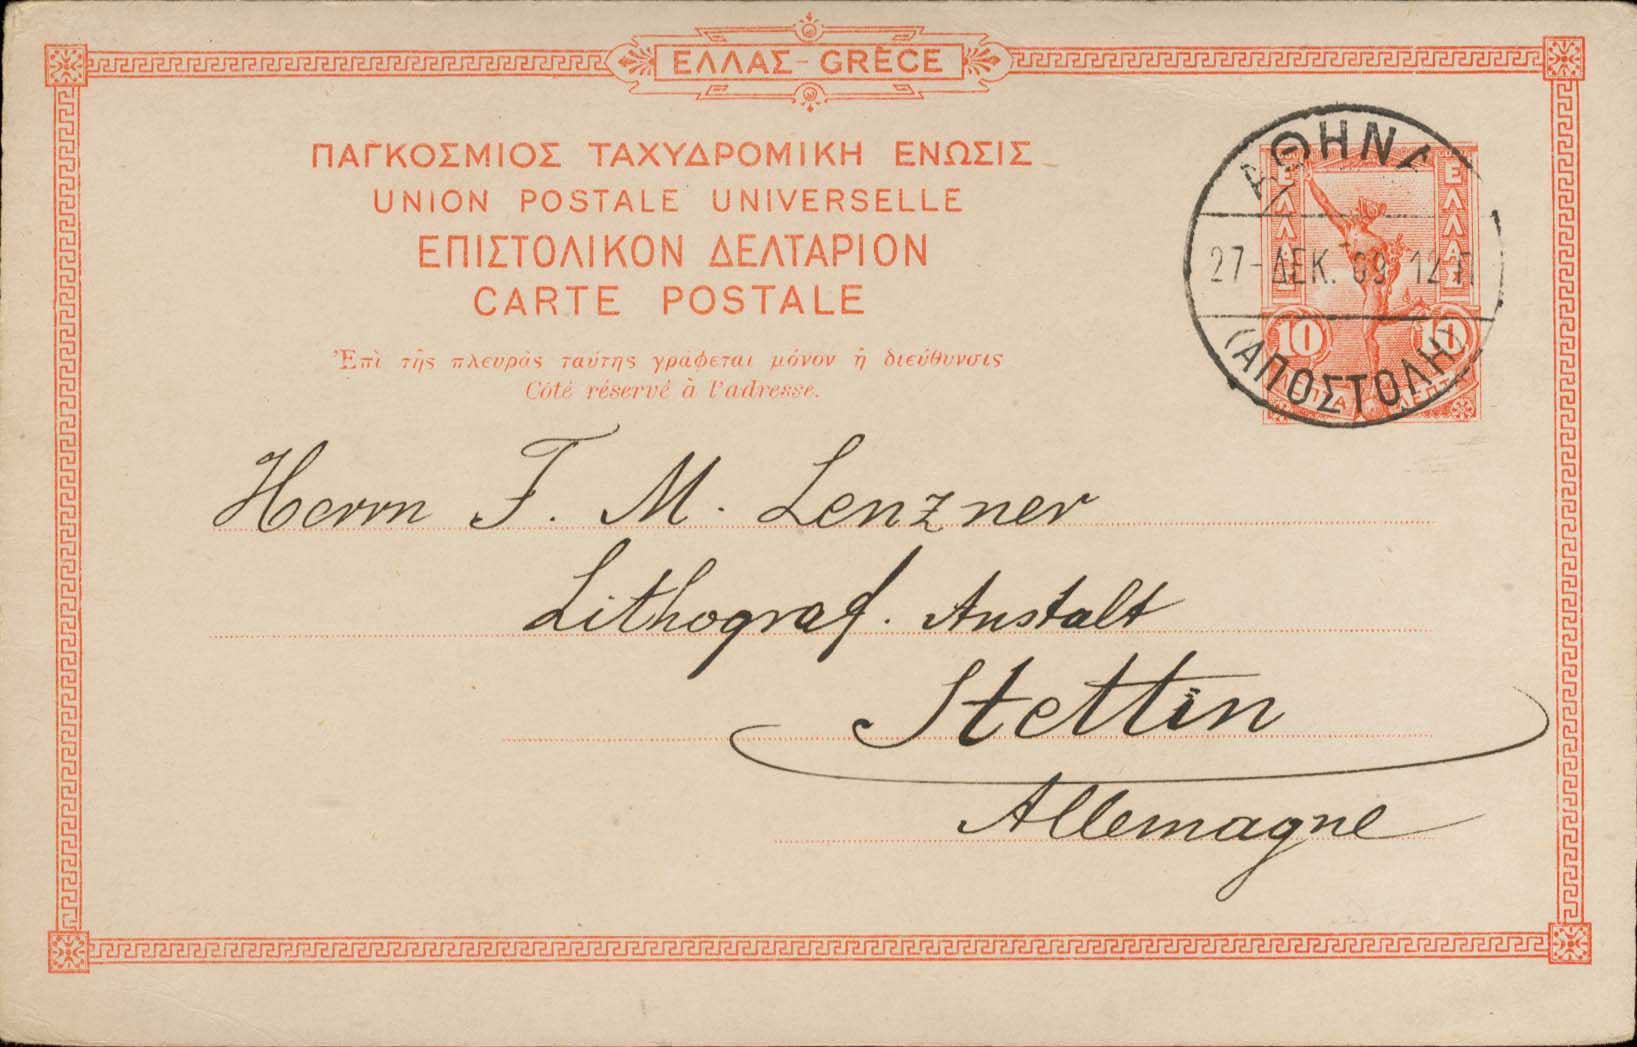 ΕΛΛΑΣ - GRÈCE
ΠΑΓΚΟΣΜΙΟΣ ΤΑΧΥΔΡΟΜΙΚΗ ΕΝΩΣΙΣ
UNION POSTALE UNIVERSELLE
ΕΠΙΣΤΟΛΙΚΟΝ ΔΕΛΤΑΡΙΟΝ
CARTE POSTALE
Ἐπὶ τῆς πλευρᾶς ταύτης γράφεται μόνον ἡ διεύθυνσις
Côté réservé à l'adresse.
ΑΘΗΝΑ
27-ΔΕΚ. 09 12 Π
(ΑΠΟΣΤΟΛΗ)
ΕΛΛΑΣ ΕΛΛΑΣ
10 10
ΛΕΠΤΑ ΛΕΠΤΑ
Herrn F. M. Lenzner
Lithograf. Anstalt
Stettin
Allemagne